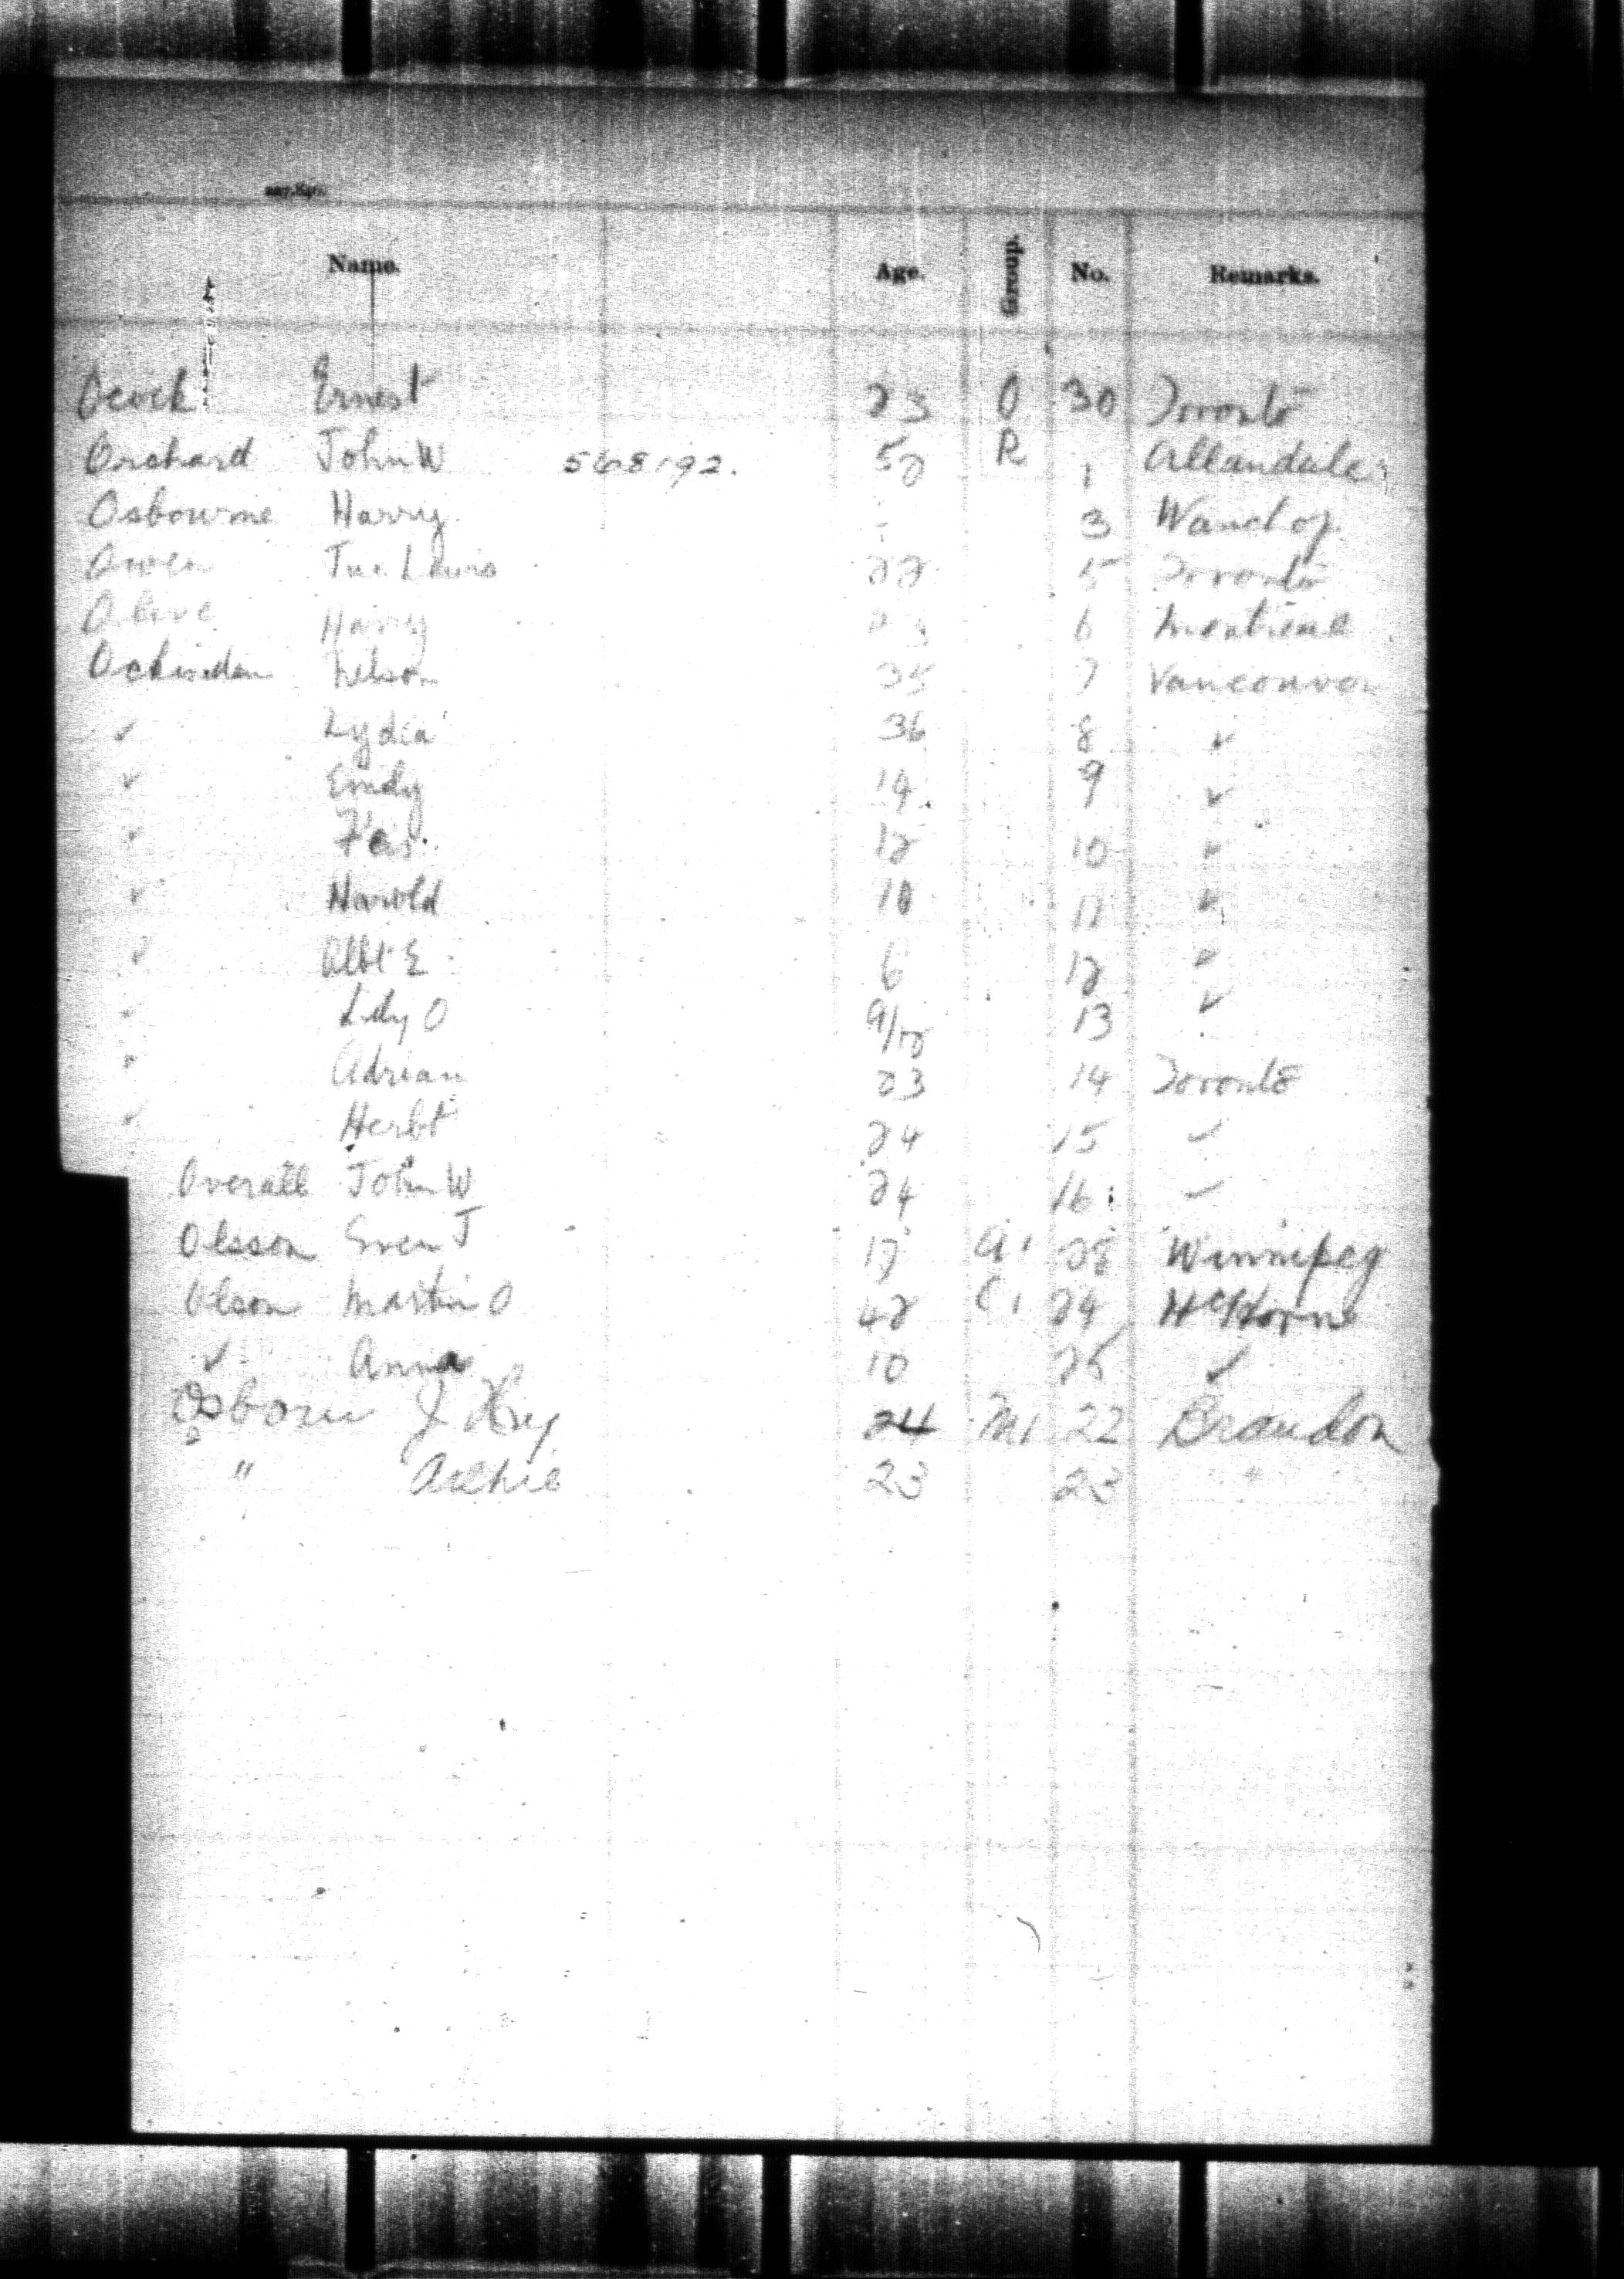 Name. Age. Group. No. Remarks.
Ernest 23 O 30 Toronto
Orchard John W 568192. 50 R 1 Allandale
Osbourne Harry 3
Owen Lewis 22 5 Toronto
Olive Harry 6 Montreal
Nelson 35 7 Vancouver
✓ Lydia 36 8 ✓
✓ Emily 14 9 ✓
✓ 12 10 ✓
✓ Harold 10 11 ✓
✓ Albt E 6 12 "
Lily O 9/12 13 ✓
" Adrian 23 14 Toronto
✓ Herbt 24 15 ✓
Overall John W 24 16 ✓
Olsson Sven J 17 28 Winnipeg
Olson Martin O 42 C1 24
✓ Anna 10 25 ✓
Osborn J Hry 24 M1 22 Brandon
" Archie 23 23 "